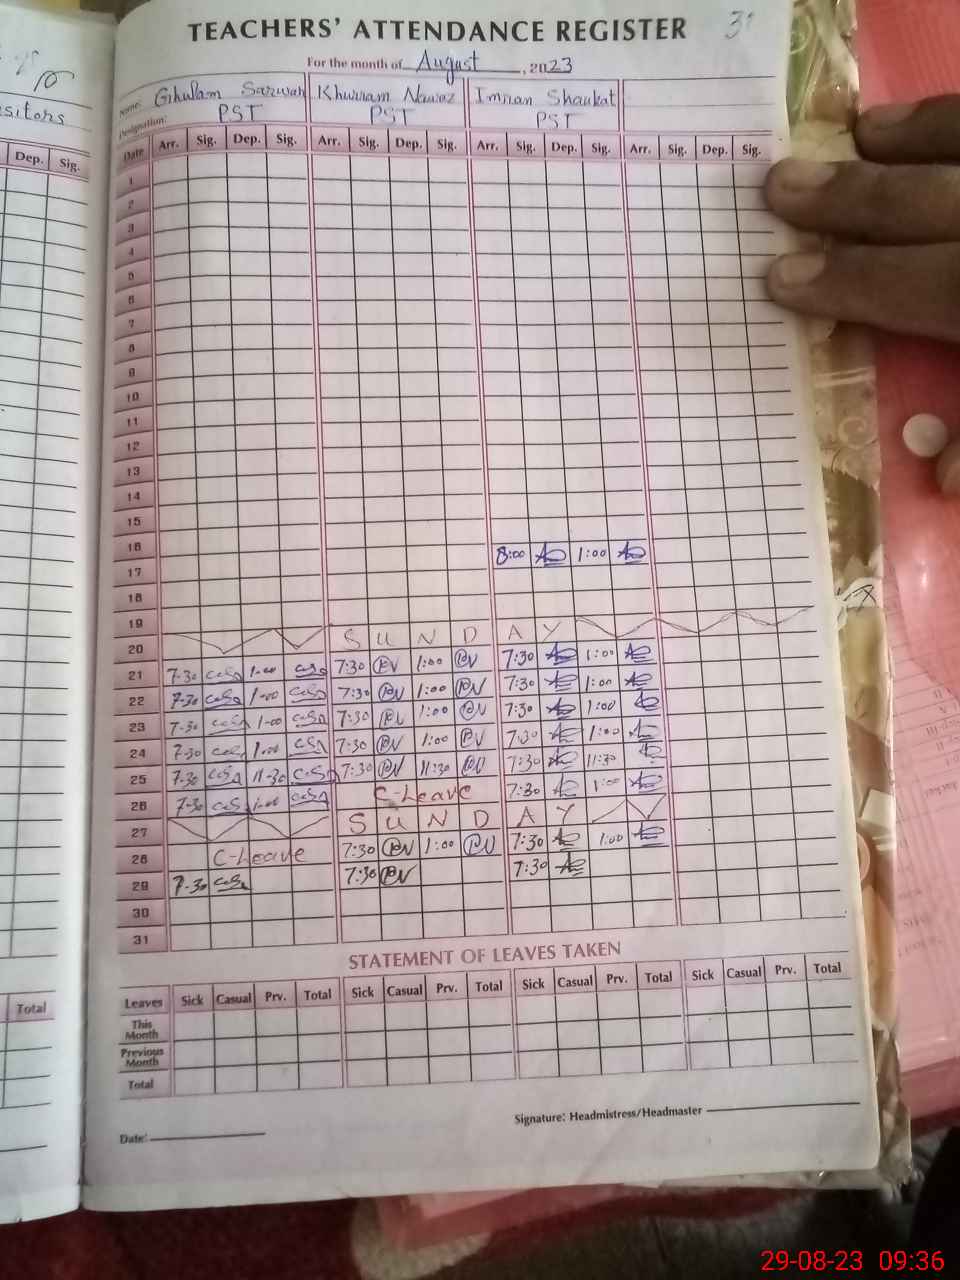 TEACHERS' ATTENDANCE REGISTER 31
For the month of August, 2023
Name: Ghulam Sarwar Khurram Nawaz Imran Shaukat
Designation: PST PST PST
Date Arr. Sig. Dep. Sig. Arr. Sig. Dep. Sig. Arr. Sig. Dep. Sig. Arr. Sig. Dep. Sig.
isitors
Dep. Sig.
1
2
3
4
5
6
7
8
9
10
11
12
13
14
15
16 8:00 1:00
17
18
19
20 S U N D A Y
21 7-30 1-00 7:30 1:00 7:30 1:00
22 7-30 1-00 7:30 1:00 7:30 1:00
23 7-30 1-00 7:30 1:00 7:30 1:00
24 7-30 1-00 7:30 1:00 7:30 1:00
25 7-30 11-30 7:30 11:30 7:30 11:30
26 7-30 1-00 C-Leave 7:30 1:00
27 S U N D A Y
28 C-Leave 7:30 1:00 7:30 1:00
29 7-30 7:30 7:30
30
31
STATEMENT OF LEAVES TAKEN
Leaves Sick Casual Prv. Total Sick Casual Prv. Total Sick Casual Prv. Total Sick Casual Prv. Total
Total
This Month
Previous Month
Total
Signature: Headmistress/Headmaster
Date:
29-08-23 09:36